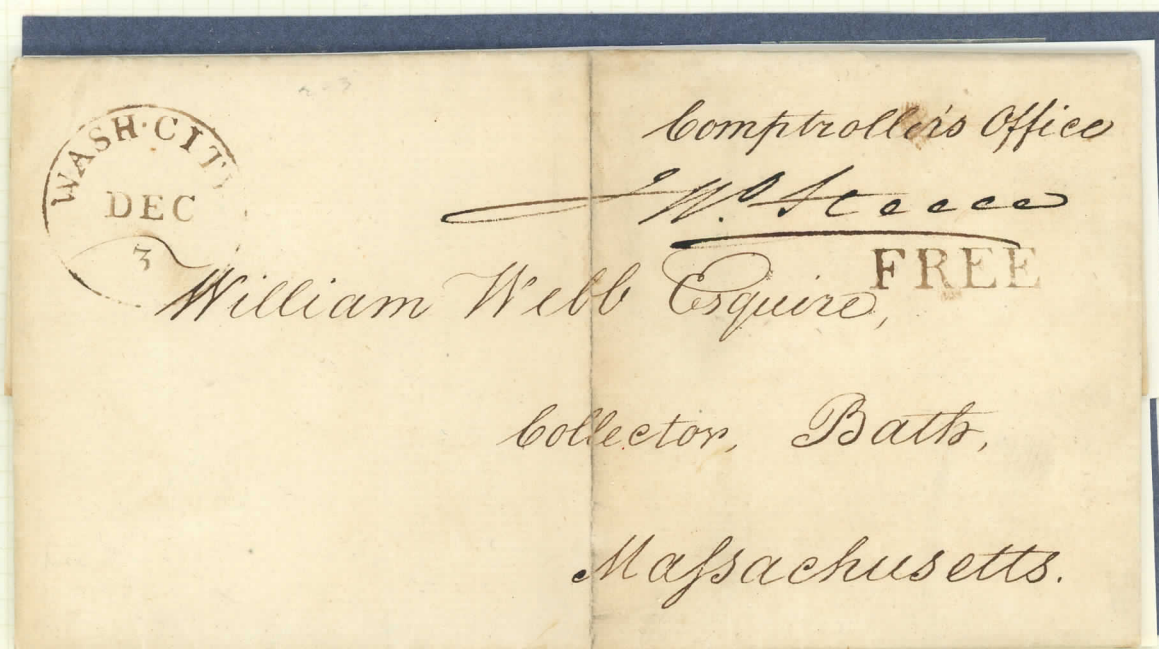 WASH·CITY
DEC
3
Comptroller's Office
FREE
William Webb Esquire,
Collector, Bath,
Maſsachusetts.